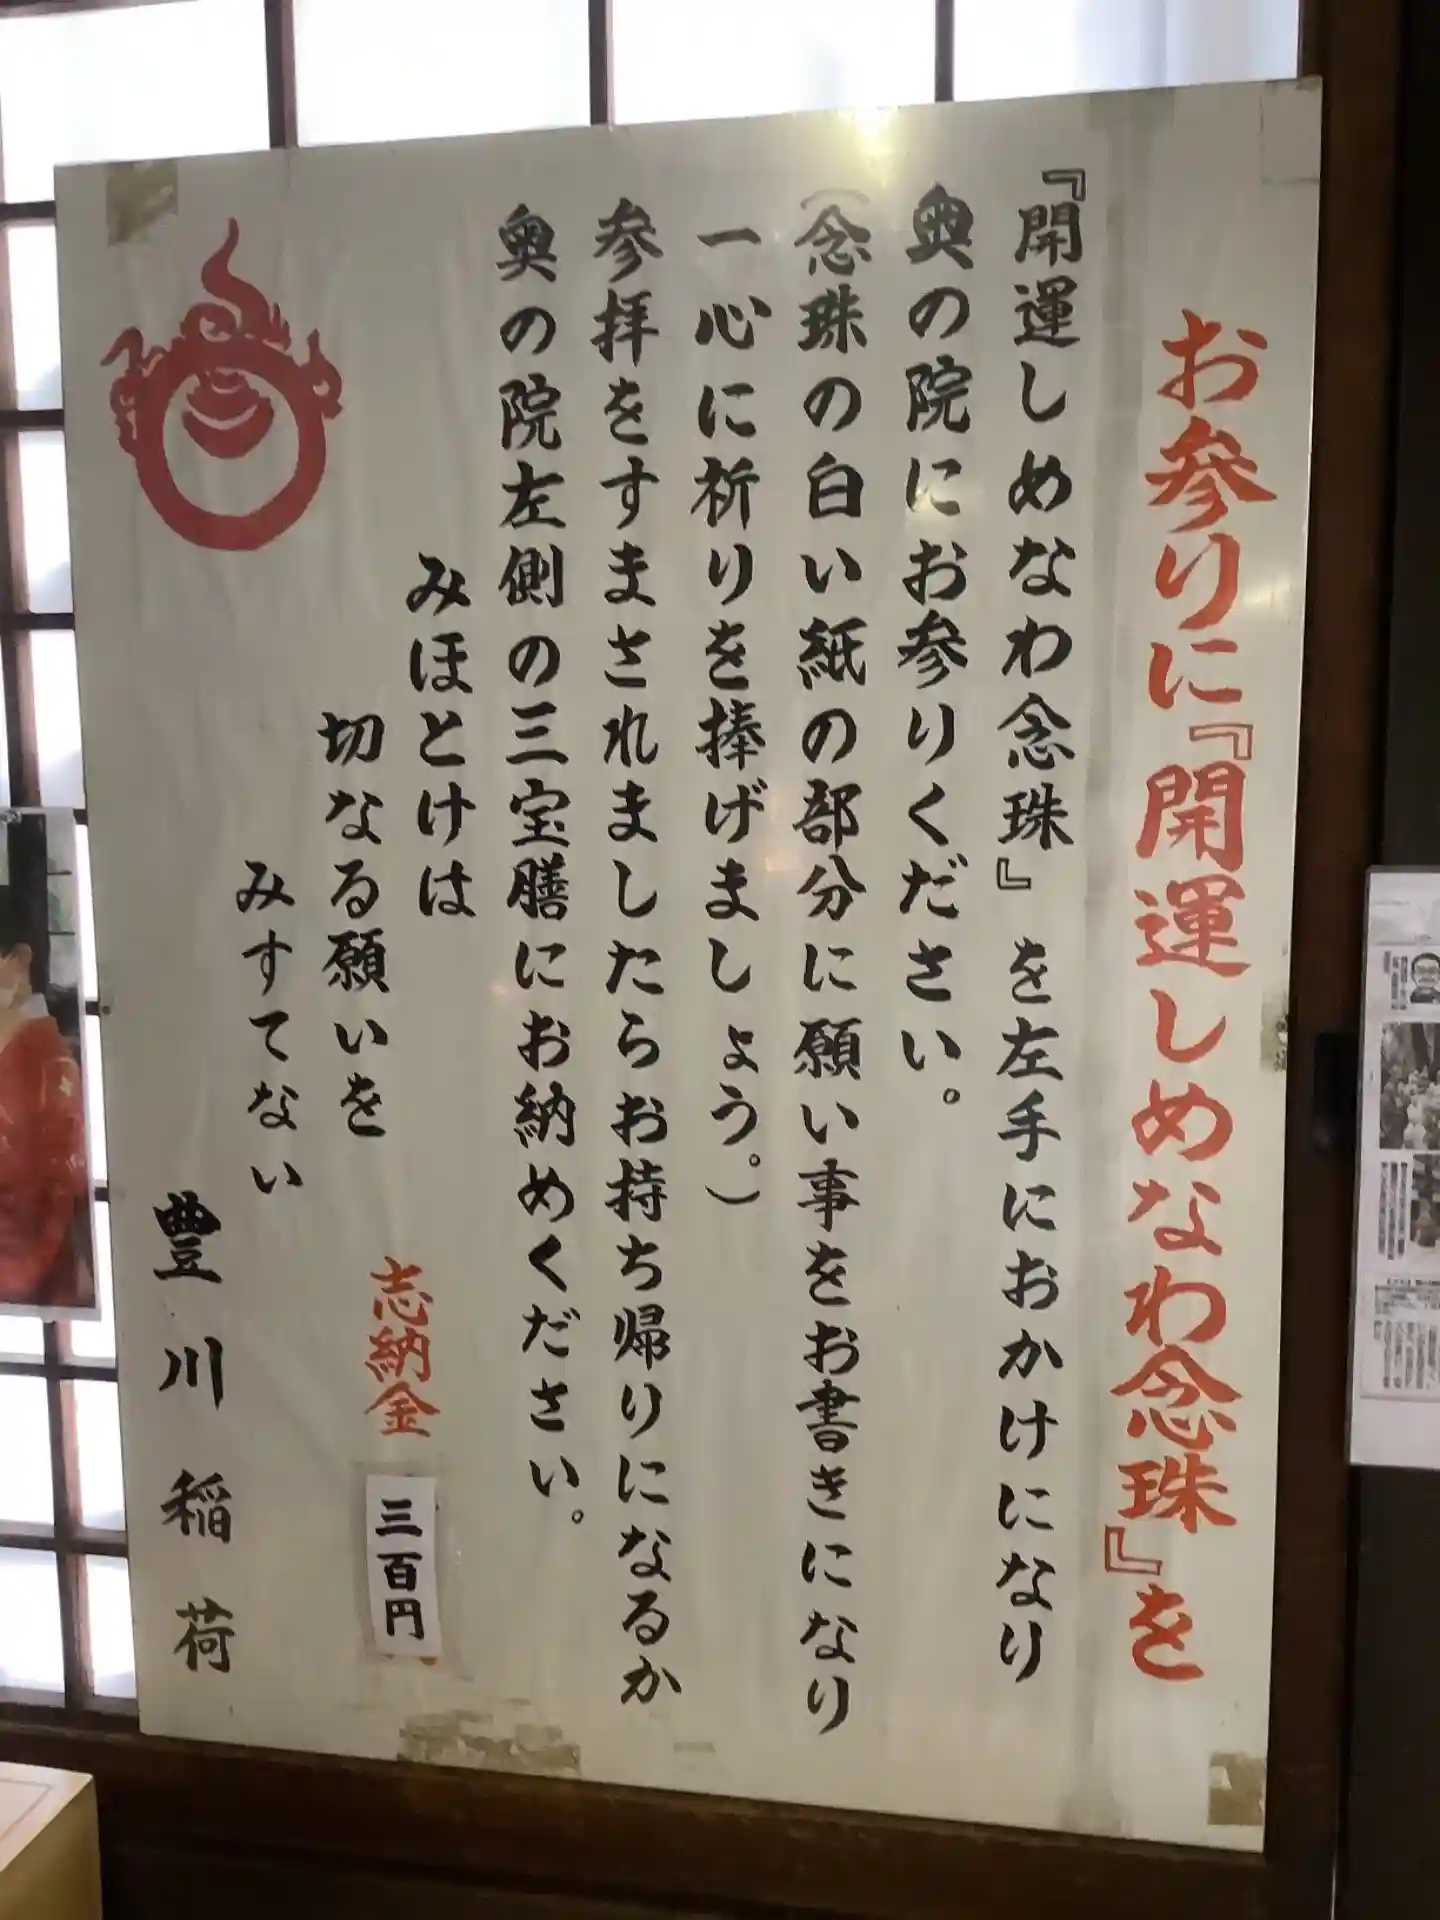 お参りに『開運しめなわ念珠』を
『開運しめなわ念珠』を左手におかけになり
奥の院にお参りください。
(念珠の白い紙の部分に願い事をお書きになり
一心に祈りを捧げましょう。)
参拝をすまされましたらお持ち帰りになるか
奥の院左側の三宝膳にお納めください。
みほとけは
切なる願いを
みすてない
志納金
三百円
豊川稲荷